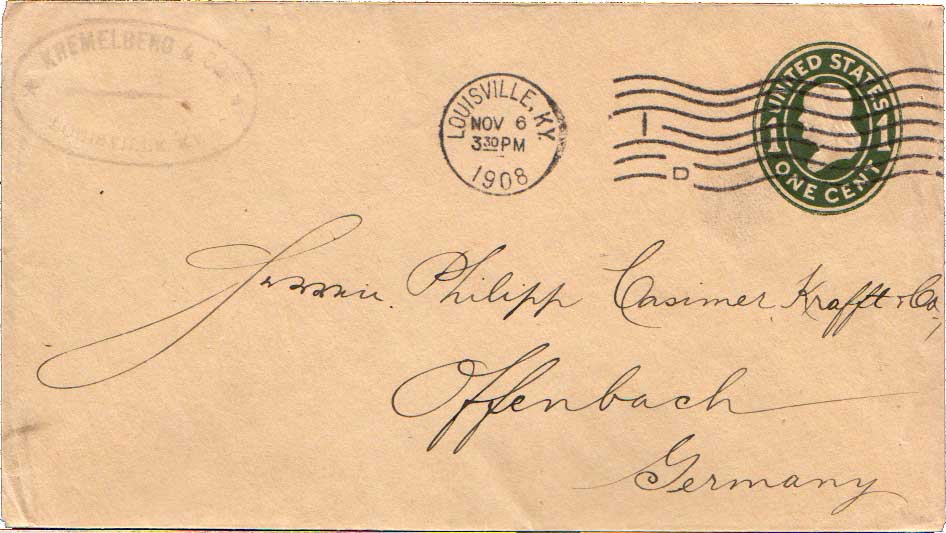 KREMELBERG & CO.
LOUISVILLE, KY.
LOUISVILLE, KY.
NOV 6
3 30 PM
1908
1
D
UNITED STATES
1 1
ONE CENT
Herren Philipp Casimer Krafft & Co,
Offenbach
Germany